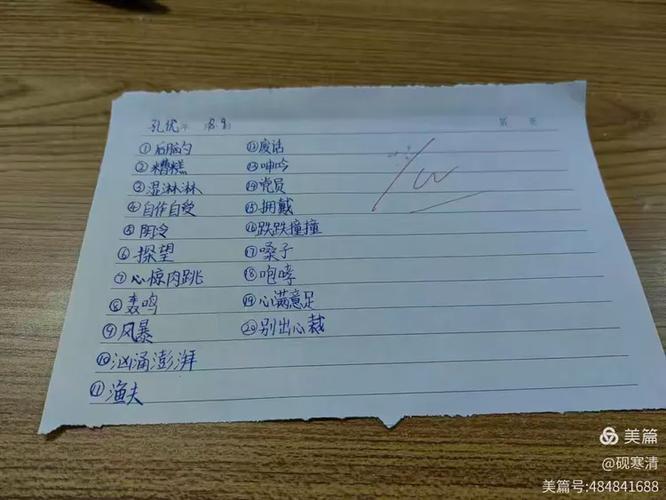 孔优 8.9
①后脑勺 ⑫废话
②糟糕 ⑬呻吟
③湿淋淋 ⑭党员
④自作自受 ⑮拥戴
⑤阴冷 ⑯跌跌撞撞
⑥探望 ⑰嗓子
⑦心惊肉跳 ⑱咆哮
⑧轰鸣 ⑲心满意足
⑨风暴 ⑳别出心裁
⑩汹涌澎湃
⑪渔夫
美篇
@砚寒清
美篇号:484841688